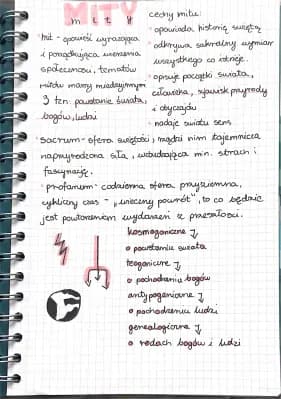 MITY
mity
mit - opowieść wyrażająca
i porządkująca wierzenia
społeczności, tematów
mitów mamy między innymi
3 tzn. powstanie świata,
bogów, ludzi
cechy mitu:
opowiada historię świętą
odkrywa sakralny wymiar
wszystkiego co istnieje.
opisuje początki świata,
człowieka, zjawisk przyrody
i obyczajów
nadaje światu sens
sacrum - sfera świętości, rządzi nim tajemnicza
nadprzyrodzona siła, wzbudzająca min. strach i
fascynację.
profanum - codzienna sfera przyziemna,
cykliczny czas - "wieczny powrót", to co będzie
jest powtórzeniem wydarzeń z przeszłości.
kosmogoniczne
o powstaniu świata
teogoniczne
o pochodzeniu bogów
antypogeniczne
o pochodzeniu ludzi
genealogiczne
o rodach bogów i ludzi